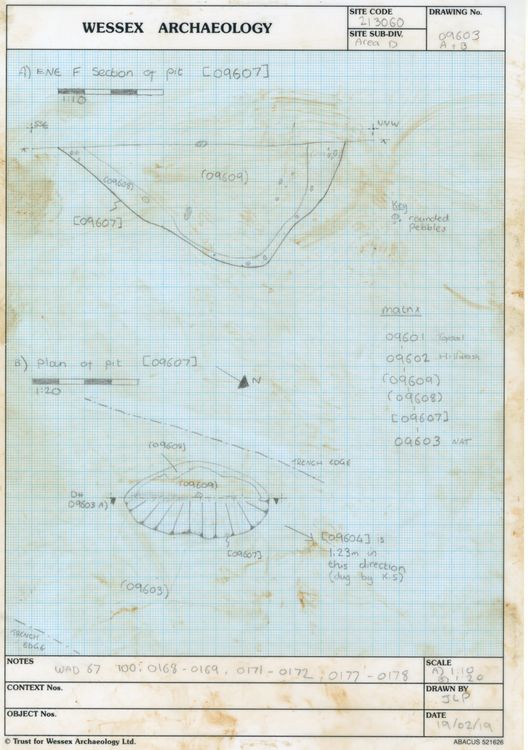 WESSEX ARCHAEOLOGY
SITE CODE
213060
SITE SUB-DIV.
Area D
DRAWING No.
09603
A + B
A) ENE F Section of pit [09607]
1:10
SSE
NNW
(09608)
(09609)
[09607]
Key
rounded
pebbles
matrix
09601 Topsoil
09602 Hillwash
(09609)
(09608)
[09607]
09603 NAT
B) Plan of pit [09607]
1:20
N
TRENCH EDGE
(09608)
(09609)
D#
09603 A)
[09607]
[09604] is
1.23m in
this direction
(dug by X.S)
(09603)
TRENCH
EDGE
NOTES
WAD 67 100: 0168 - 0169, 0171 - 0172, 0177 - 0178
CONTEXT Nos.
OBJECT Nos.
SCALE
A) 1:10
B) 1:20
DRAWN BY
JLP
DATE
19/02/19
© Trust for Wessex Archaeology Ltd.
ABACUS 521626